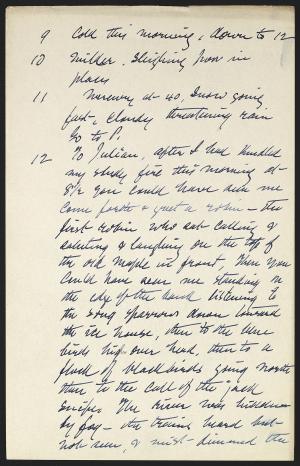 9 Cold this morning, down to 12
10 Milder. Sleighing poor in
places
11 Mercury at 40, Snow going
fast, cloudy threatening rain
Go to P.
12 To Julian, after I had kindled
my study fire this morning at
8½ you could have seen me
come forth & greet a robin - the
first robin who sat calling &
saluting & laughing on the top of
the old maple in front, then you
could have seen me standing on
the edge of the bank listening to
the song sparrows down toward
the ice house, then to the blue
birds high over head, then to a
flock of blackbirds going north
then to the call of the jack
snipe. The river was hidden
by fog - the trains heard but
not seen, & mist dimmed the